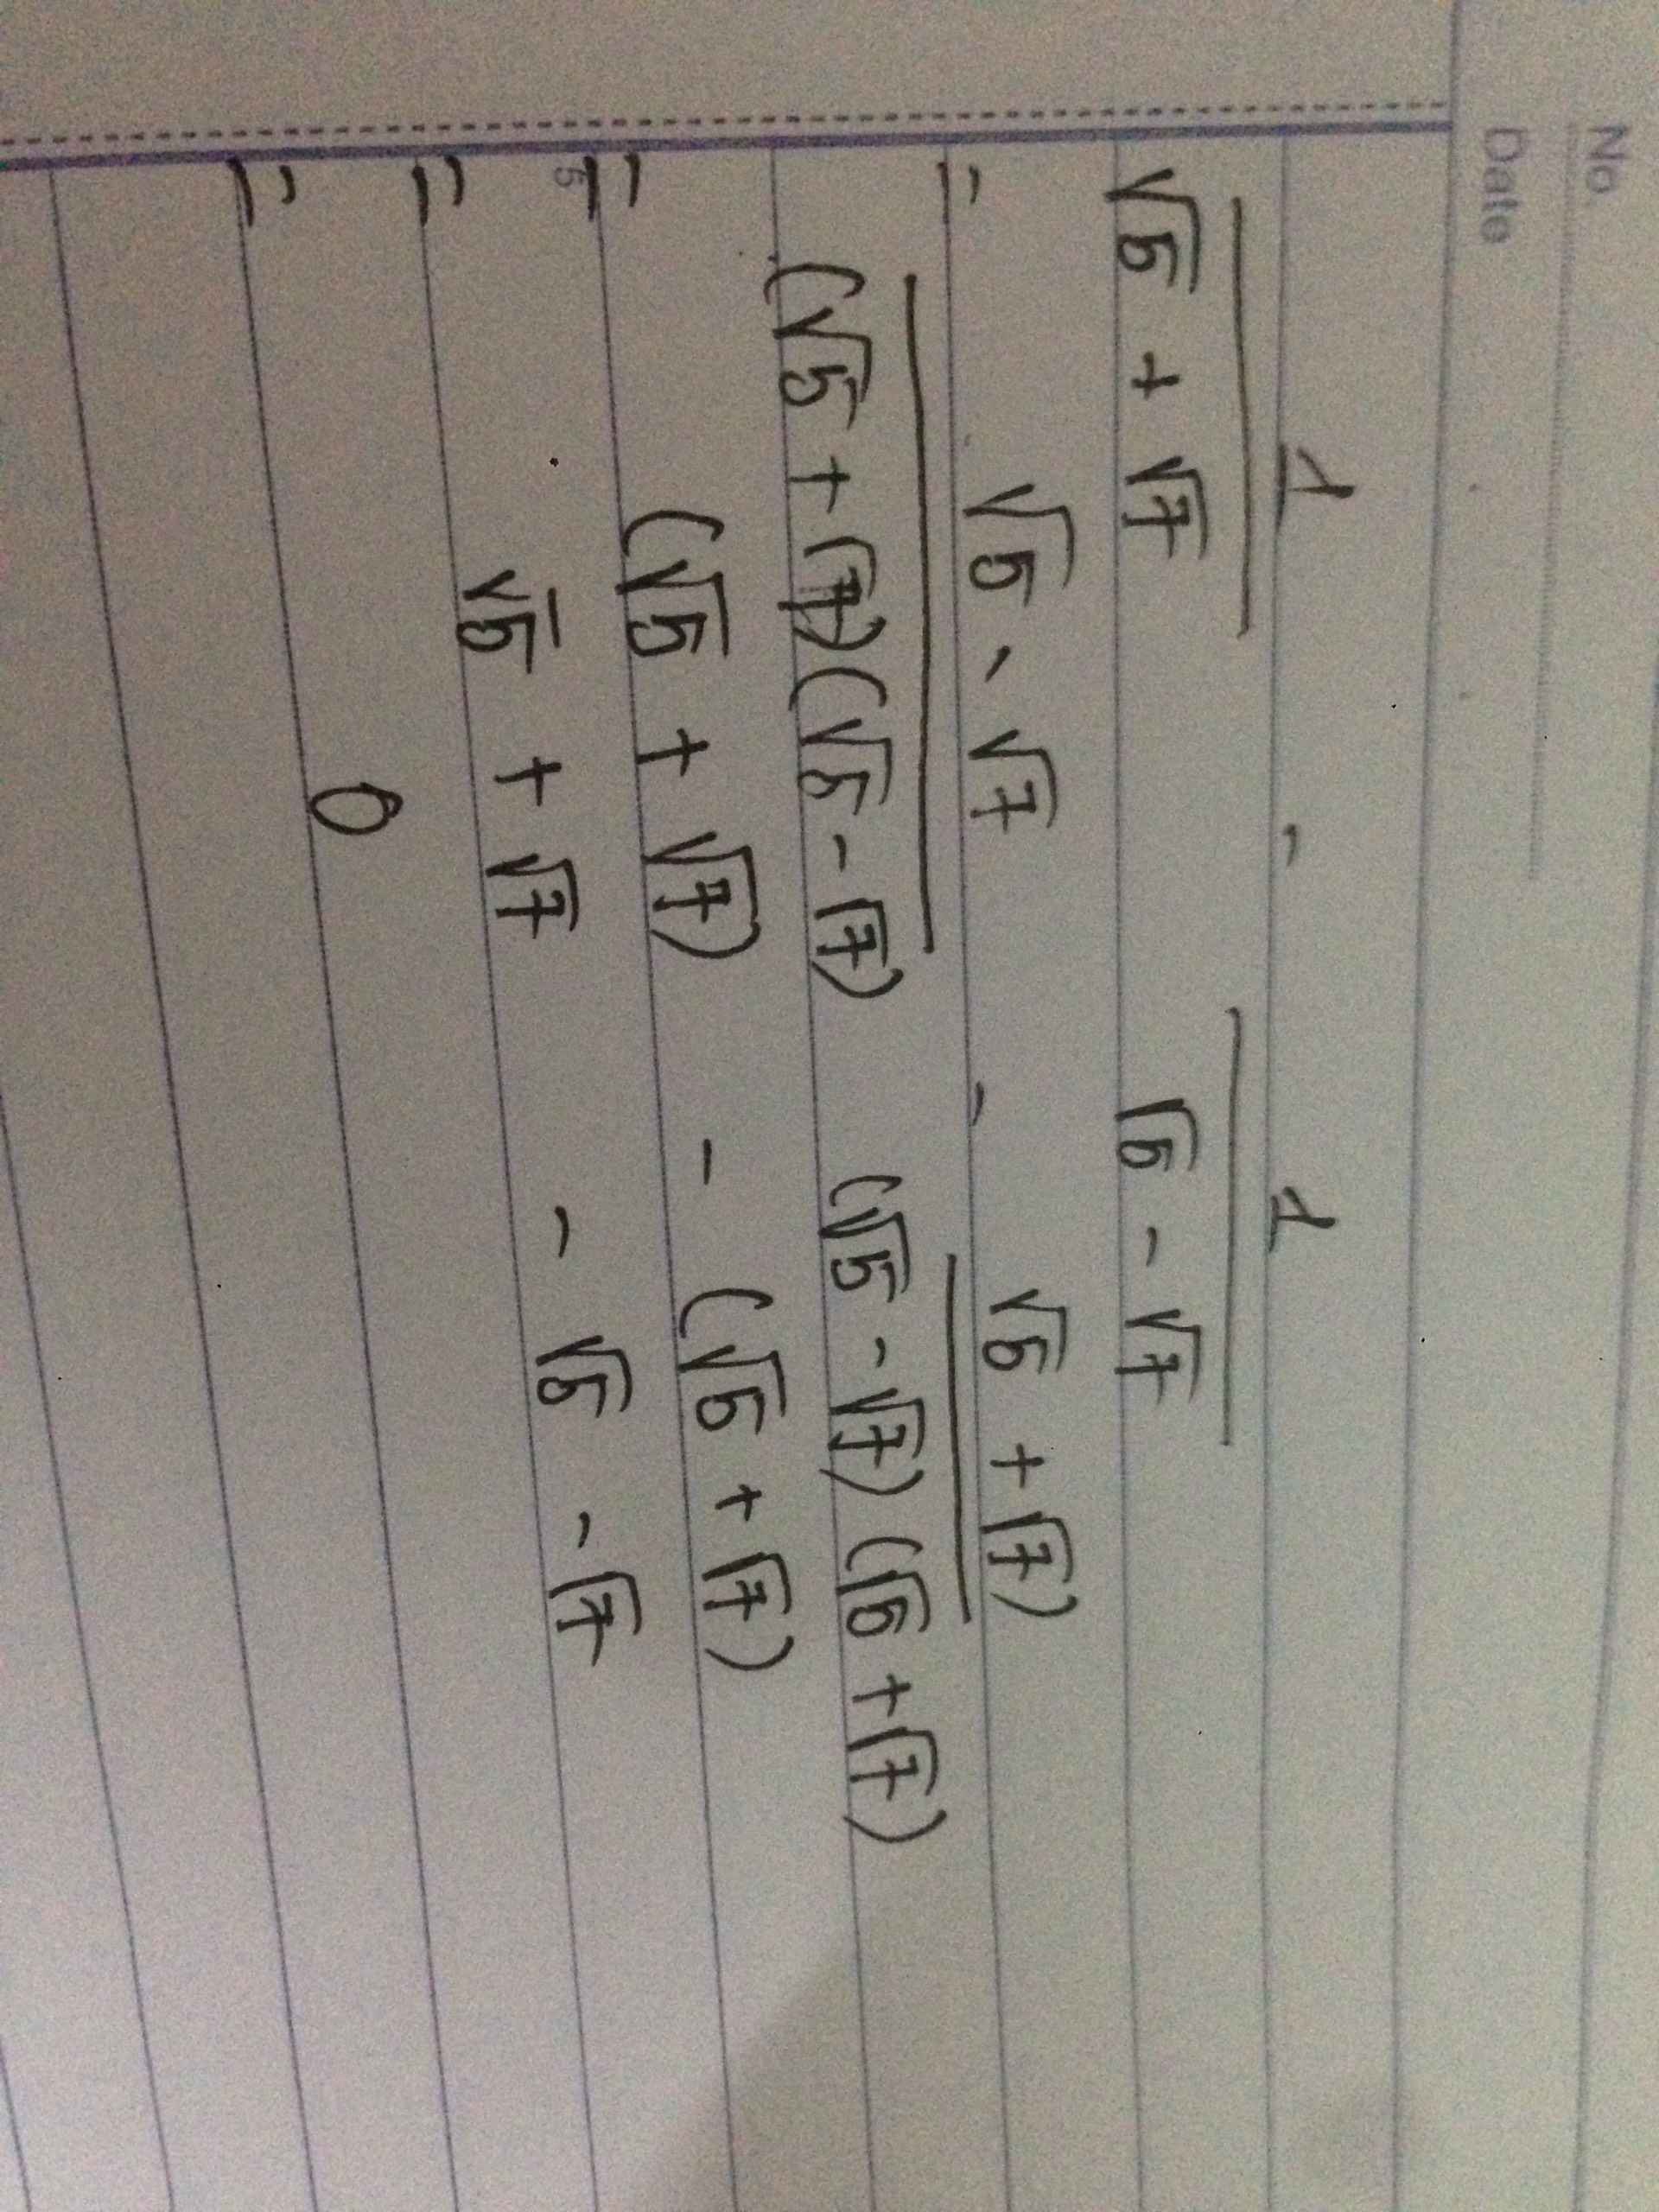 No.
Date
1 - 1
√5 + √7 √5 - √7
= √5 - √7 - √5 + √7)
(√5 + √7)(√5 - √7) (√5 - √7) (√5 + √7)
= (√5 + √7) - (√5 + √7)
5
= √5 + √7 - √5 - √7
= 0